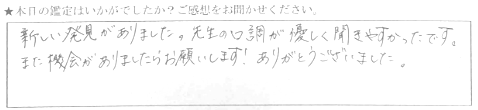 ★本日の鑑定はいかがでしたか？ご感想をお聞かせください。
新しい発見がありました。先生の口調が優しく聞きやすかったです。
また機会がありましたらお願いします！ありがとうございました。